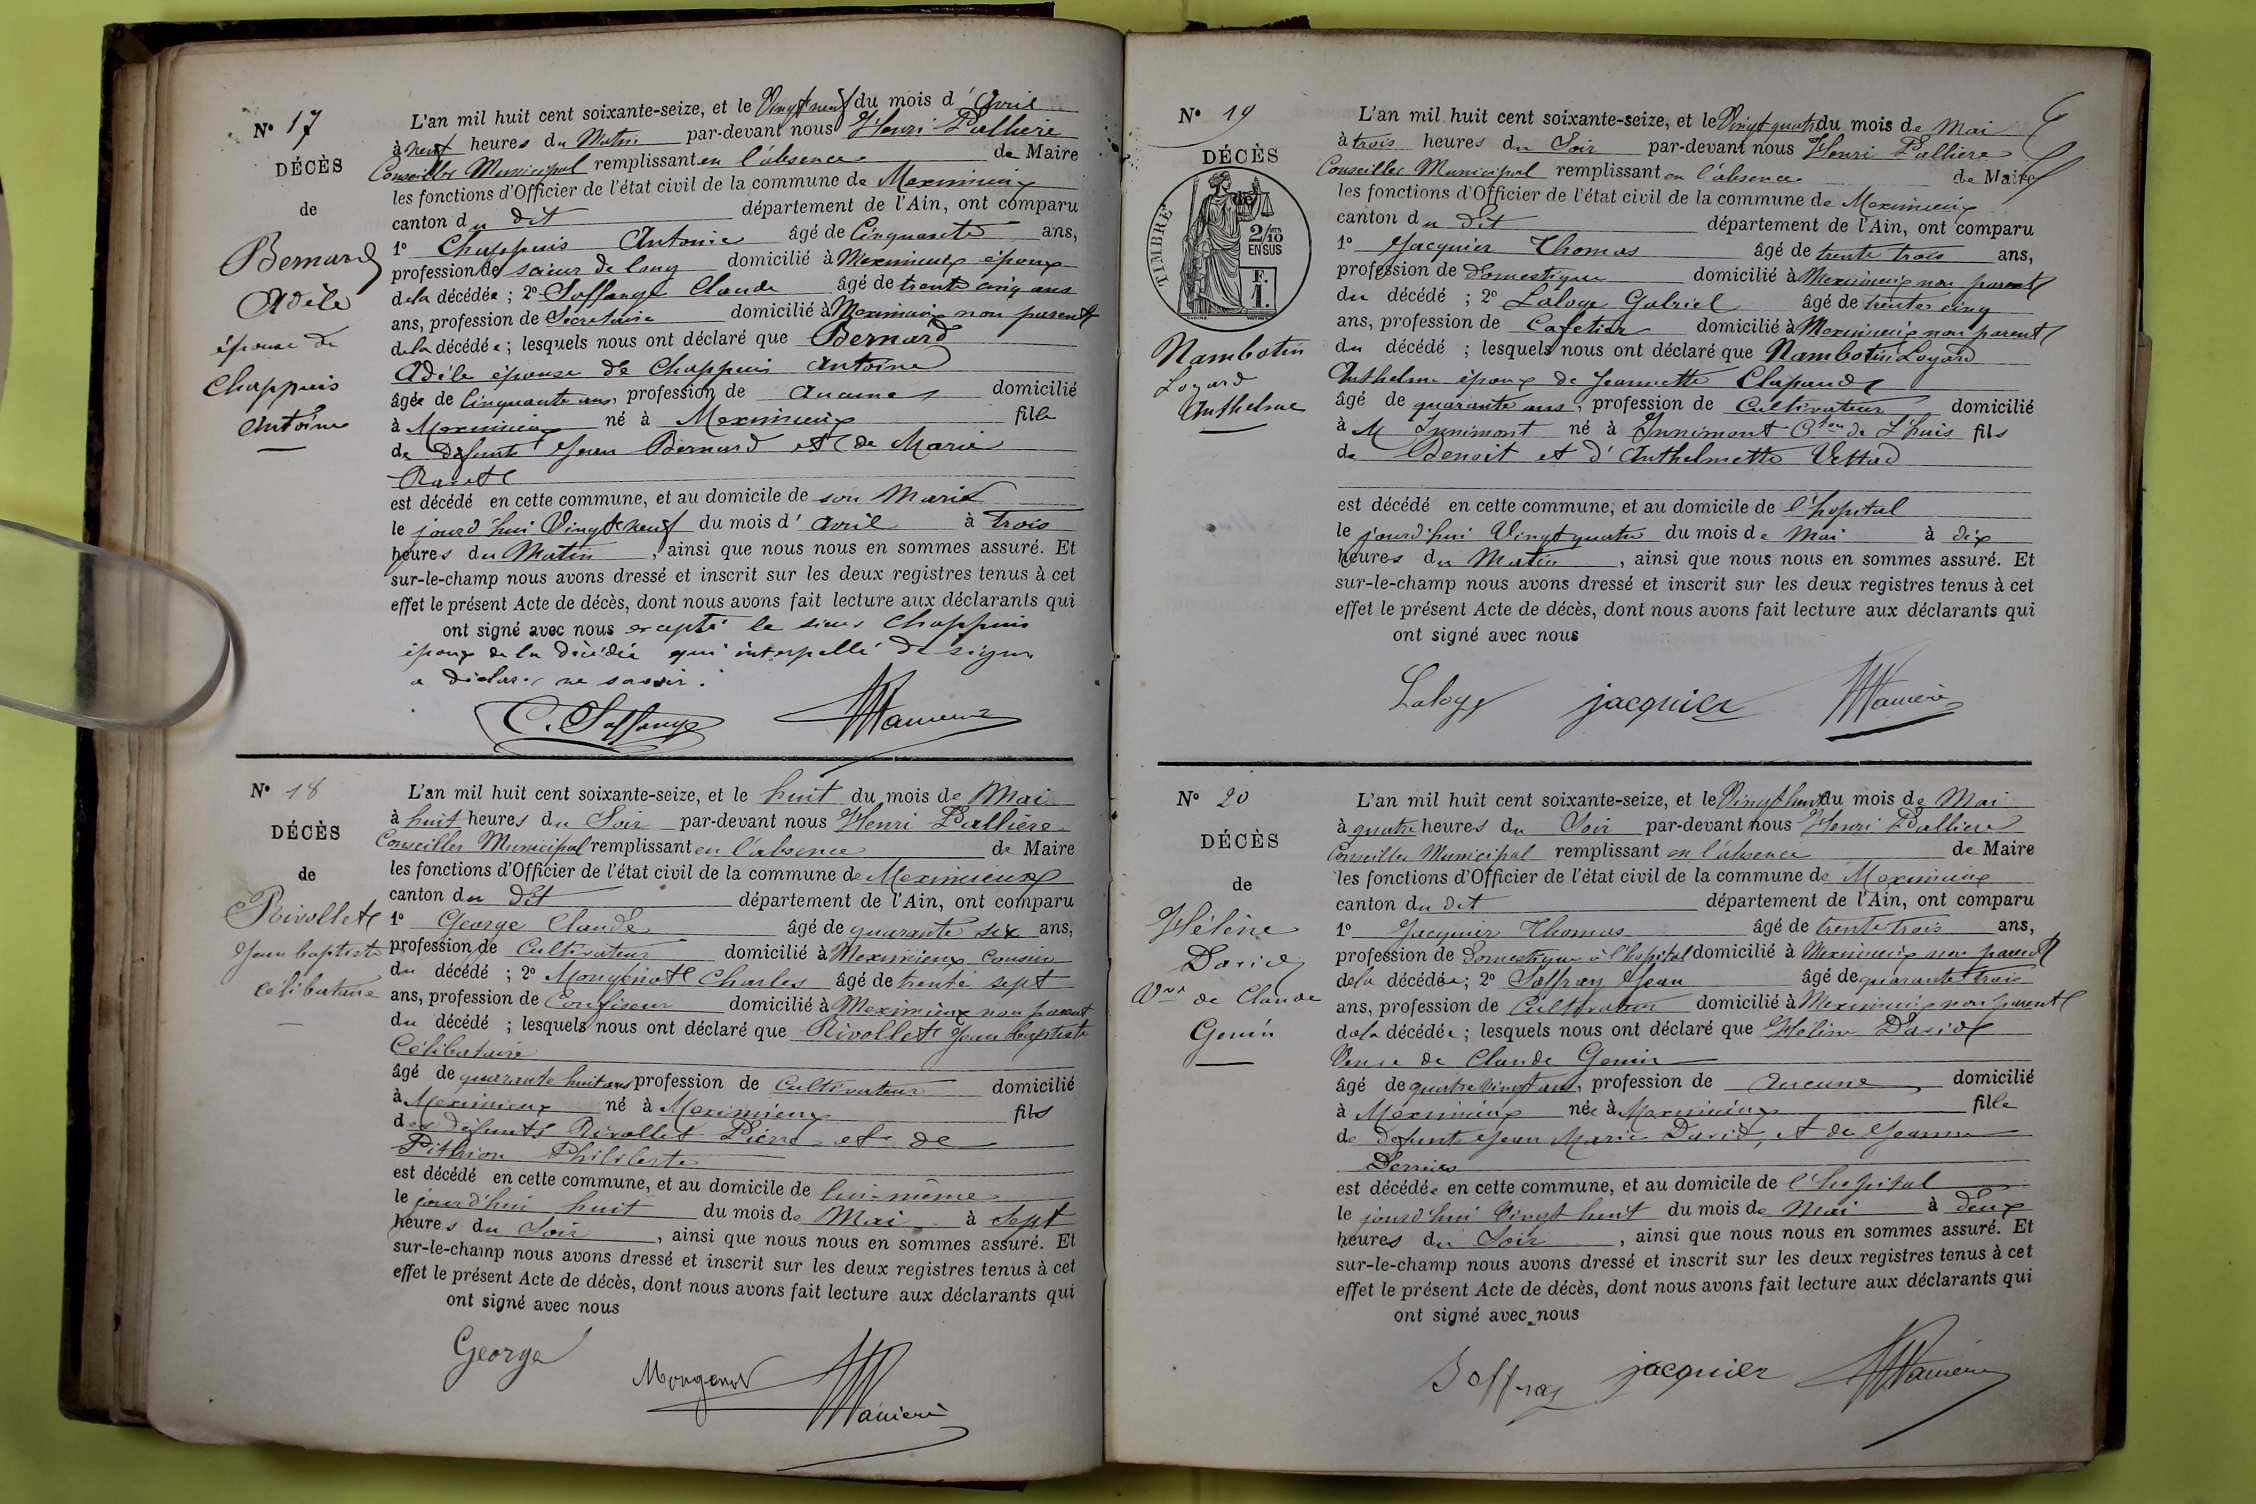 N° 17
DÉCÈS
de
Bernard
Adèle
épouse de
Chappuis
Antoine
L'an mil huit cent soixante-seize, et le Vingt neuf du mois d' Avril
à neuf heures du Matin par-devant nous Henri Pallière
Conseiller Municipal remplissant en l'absence de Maire
les fonctions d'Officier de l'état civil de la commune de Meximieux
canton du dit département de l'Ain, ont comparu
1° Chappuis Antoine âgé de Cinquante ans,
profession de scieur de long domicilié à Meximieux époux
de la décédée ; 2° Soffange Claude âgé de trente cinq ans
ans, profession de Secretaire domicilié à Meximieux non parent
de la décédée ; lesquels nous ont déclaré que Bernard
Adèle épouse de Chappuis Antoine
âgée de Cinquante ans, profession de Aucune domicilié
à Meximieux né à Meximieux fille
de défunte Jean Bernard et de Marie
est décédé en cette commune, et au domicile de son Marie
le jourd'hui Vingt neuf du mois d' avril à trois
heures du Matin, ainsi que nous nous en sommes assuré. Et
sur-le-champ nous avons dressé et inscrit sur les deux registres tenus à cet
effet le présent Acte de décès, dont nous avons fait lecture aux déclarants qui
ont signé avec nous excepté le sieur Chappuis
époux de la décédée qui interpellé de signer
a déclaré ne savoir.
C. Soffange
N° 18
DÉCÈS
de
Rivollet
Jean baptiste
célibataire
L'an mil huit cent soixante-seize, et le huit du mois de Mai
à huit heures du Soir par-devant nous Henri Pallière
Conseiller Municipal remplissant en l'absence de Maire
les fonctions d'Officier de l'état civil de la commune de Meximieux
canton du Dit département de l'Ain, ont comparu
1° George Claude âgé de quarante six ans,
profession de Cultivateur domicilié à Meximieux Cousin
du décédé ; 2° Mongenot Charles âgé de trente sept
ans, profession de Confiseur domicilié à Meximieux non parent
du décédé ; lesquels nous ont déclaré que Rivollet Jean baptiste
Célibataire
âgé de quarante huit ans profession de Cultivateur domicilié
à Meximieux né à Meximieux fils
des défunts Rivollet Pierre et de
Pithion Philiberte
est décédé en cette commune, et au domicile de lui-même
le jourd'hui huit du mois de Mai à Sept
heures du Soir, ainsi que nous nous en sommes assuré. Et
sur-le-champ nous avons dressé et inscrit sur les deux registres tenus à cet
effet le présent Acte de décès, dont nous avons fait lecture aux déclarants qui
ont signé avec nous
George
Mongenot
N° 19
DÉCÈS
de
TIMBRE
2/10
EN SUS
F.
1.
Nambotin
Loyard
Anthelme
L'an mil huit cent soixante-seize, et le Vingt quatre du mois de Mai
à trois heures du Soir par-devant nous Henri Pallière
Conseiller Municipal remplissant en l'absence de Maire
les fonctions d'Officier de l'état civil de la commune de Meximieux
canton du Dit département de l'Ain, ont comparu
1° Jacquier Thomas âgé de trente trois ans,
profession de Domestique domicilié à Meximieux non parent
du décédé ; 2° Laloge Gabriel âgé de trente cinq
ans, profession de Cafetier domicilié à Meximieux non parent
du décédé ; lesquels nous ont déclaré que Nambotin Loyard
Anthelme époux de Jeannette
âgé de quarante ans, profession de Cultivateur domicilié
à M Innimont né à Innimont Cton de L'huis fils
de Benoit et d' Anthelmette Vettard
est décédé en cette commune, et au domicile de l'hopital
le jourd'hui Vingt quatre du mois de Mai à dix
heures du Matin, ainsi que nous nous en sommes assuré. Et
sur-le-champ nous avons dressé et inscrit sur les deux registres tenus à cet
effet le présent Acte de décès, dont nous avons fait lecture aux déclarants qui
ont signé avec nous
Laloge jacquier
N° 20
DÉCÈS
de
Hélène
David
Vve de Claude
Gemin
L'an mil huit cent soixante-seize, et le Vingt huit du mois de Mai
à quatre heures du Soir par-devant nous Henri Pallière
Conseiller Municipal remplissant en l'absence de Maire
les fonctions d'Officier de l'état civil de la commune de Meximieux
canton du dit département de l'Ain, ont comparu
1° Jacquier Thomas âgé de trente trois ans,
profession de Domestique à l'hopital domicilié à Meximieux non parent
de la décédée ; 2° Soffray Jean âgé de quarante trois
ans, profession de Cultivateur domicilié à Meximieux non parent
de la décédée ; lesquels nous ont déclaré que Hélène David
Veuve de Claude Gemin
âgé de quatre vingt ans, profession de Aucune domicilié
à Meximieux née à Meximieux fille
de defunt Jean Marie David, et de Jeanne
est décédée en cette commune, et au domicile de l'hopital
le jourd'hui Vingt huit du mois de Mai à deux
heures du Soir, ainsi que nous nous en sommes assuré. Et
sur-le-champ nous avons dressé et inscrit sur les deux registres tenus à cet
effet le présent Acte de décès, dont nous avons fait lecture aux déclarants qui
ont signé avec nous
Soffray jacquier